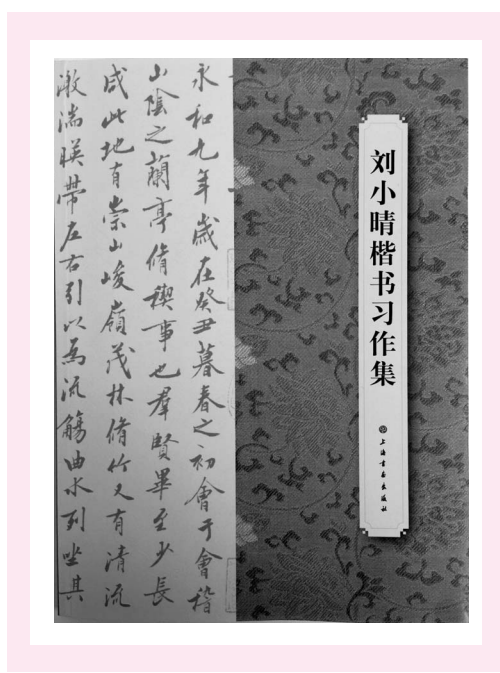 刘小晴楷书习作集
上海書画出版社
永和九年歲在癸丑暮春之初會于會稽
山陰之蘭亭脩禊事也羣賢畢至少長
咸此地有崇山峻嶺茂林脩竹又有清流
激湍暎帶左右引以為流觴曲水列坐其